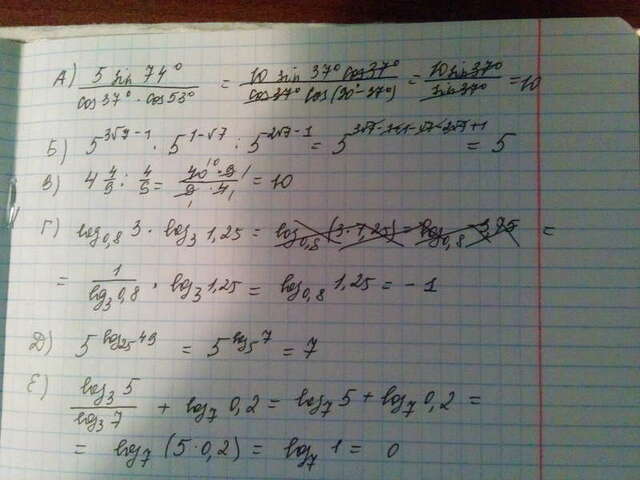 А) 5 sin 74° / cos 37° · cos 53° = 10 sin 37° cos 37° / cos 37° cos (90° - 37°) = 10 sin 37° / sin 37° = 10
Б) 5^(3√7-1) · 5^(1-√7) : 5^(2√7-1) = 5^(3√7-1+1-√7-2√7+1) = 5
В) 4 4/9 : 4/9 = 40 10 · 9 1 / 9 1 · 4 1 = 10
Г) log_0,8 3 · log_3 1,25 = log_0,8 (3 · 1,25) = log_0,8 3,75 =
= 1 / log_3 0,8 · log_3 1,25 = log_0,8 1,25 = - 1
Д) 5^(log_25 49) = 5^(log_5 7) = 7
Е) log_3 5 / log_3 7 + log_7 0,2 = log_7 5 + log_7 0,2 =
= log_7 (5 · 0,2) = log_7 1 = 0